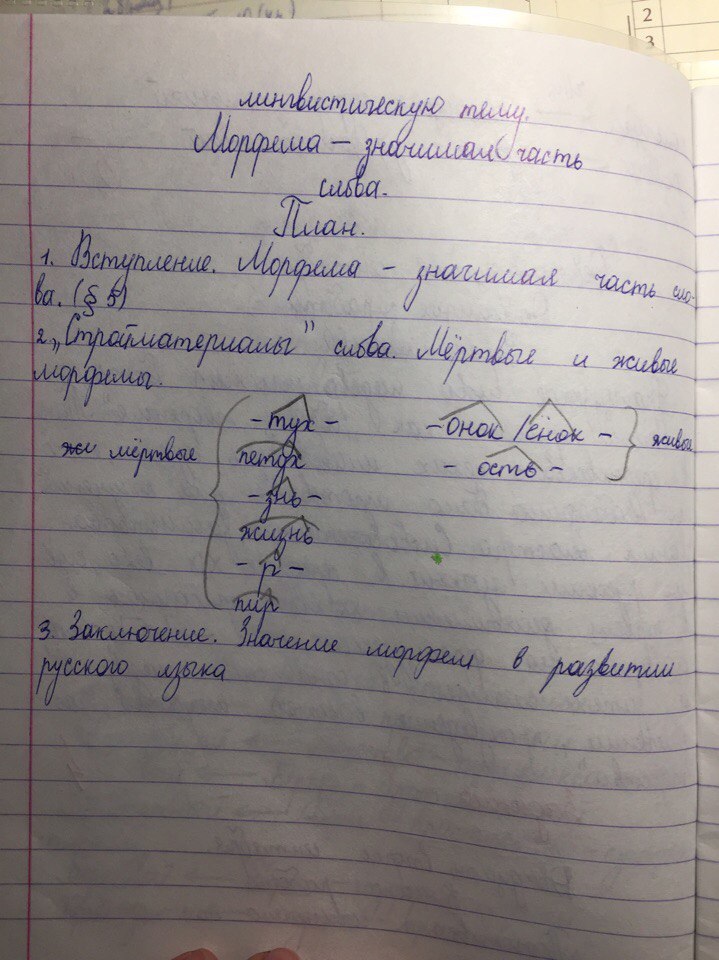 лингвистическую тему.
Морфема – значимая часть
слова.
План.
1. Вступление. Морфема – значимая часть сло-
ва. (§ 5)
2. „Стройматериалы" слова. Мёртвые и живые
морфемы.
-тух- -онок /ёнок-
мёртвые петух -ость- живые
-знь-
жизнь
-р-
пир
3. Заключение. Значение морфем в развитии
русского языка
2
3